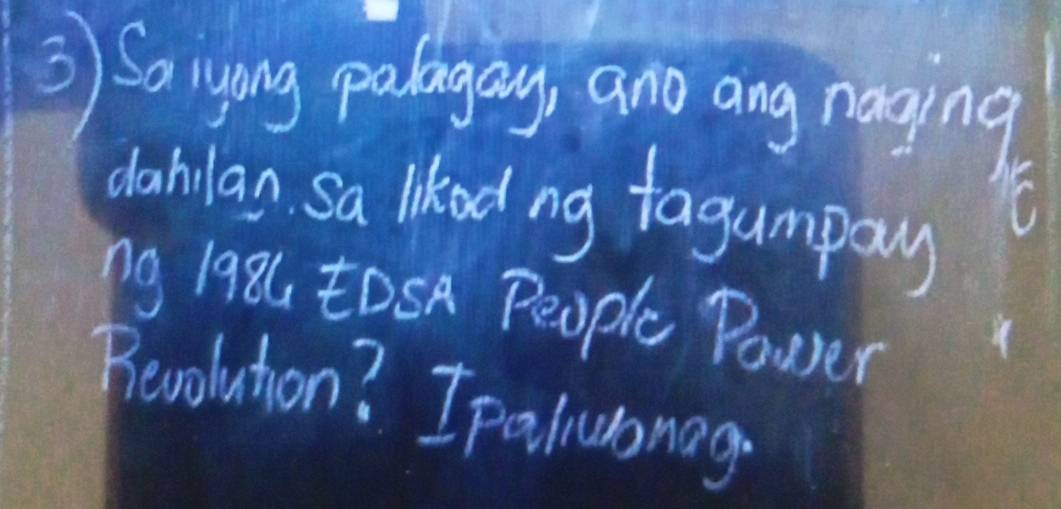 3) Sa iyong palagay, ano ang naging
dahilan sa likod ng tagumpay
ng 1986 EDSA People Power
Revolution? Ipaliwanag.